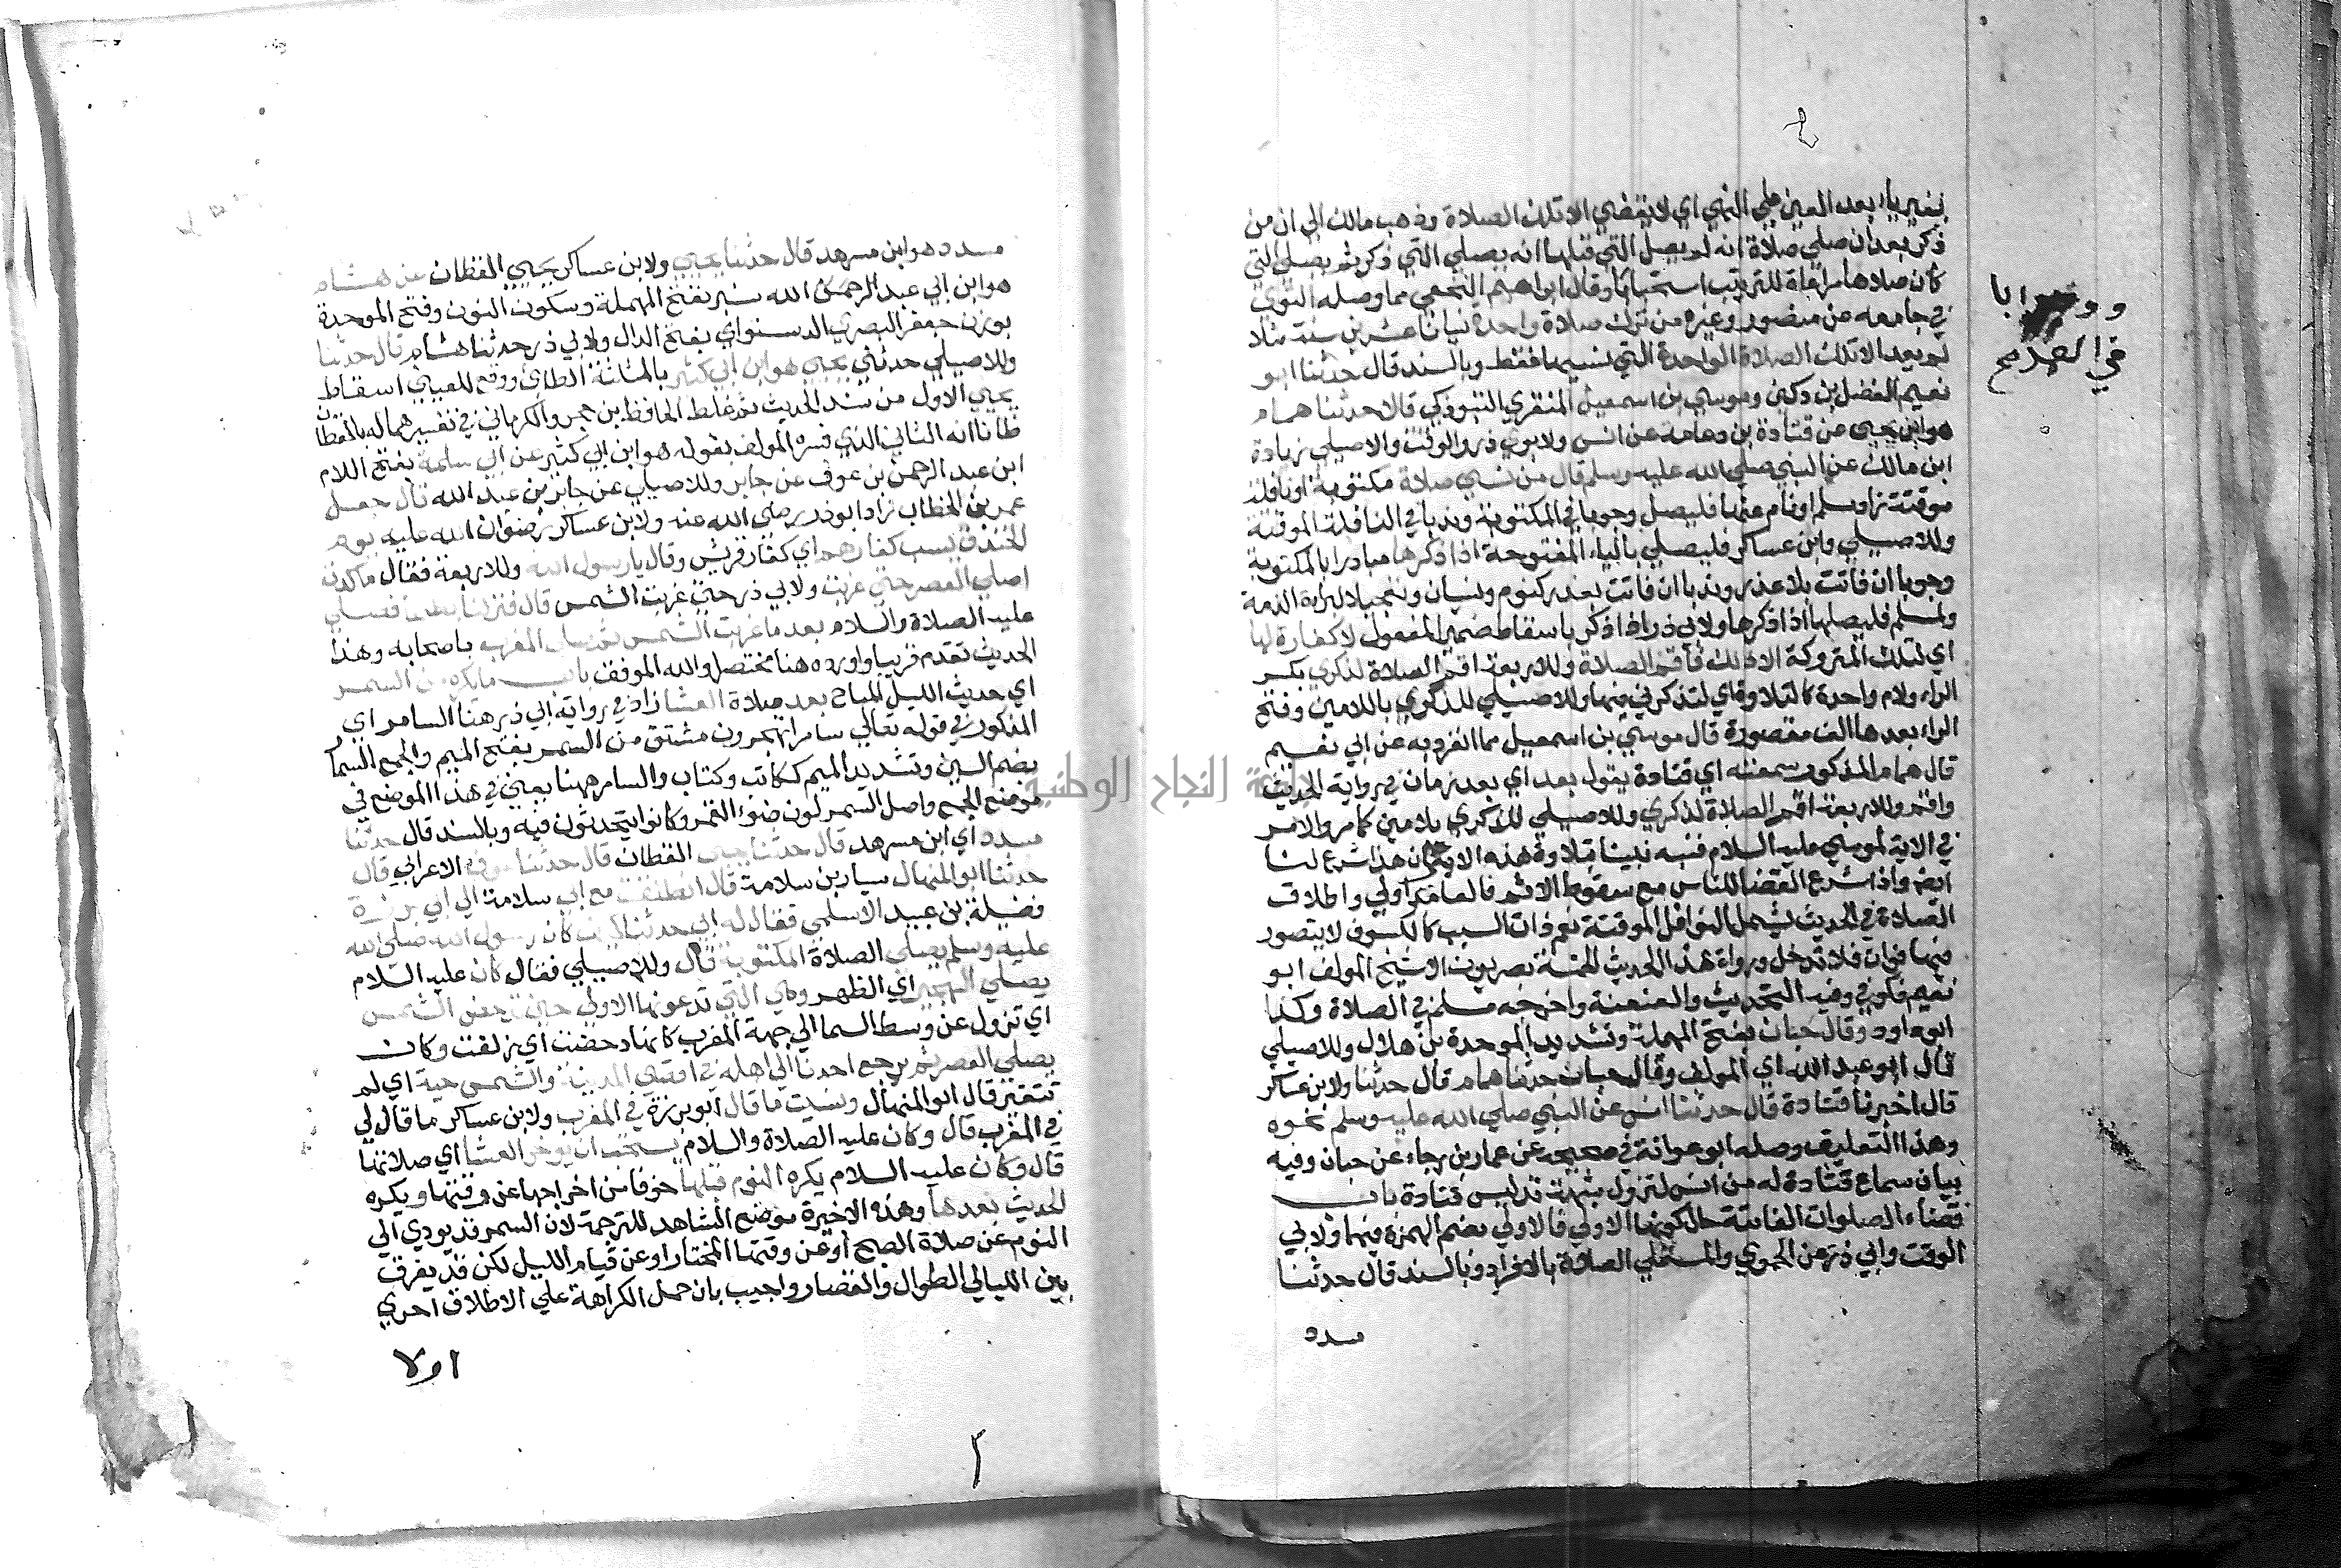 بغير ياء بعد العين علي النهي اي لا يقضي الا تلك الصلاة وذهب مالك الي ان من
ذكر بعد ان صلي صلاة انه لم يصل التي قبلها انه يصلي التي ذكر ثم يصلي التي
كان صلاها مراعاة للترتيب استحبابا وقال ابراهيم النخعي مما وصله الثوري
في جامعه عن منصور وغيره من ترك صلاة واحدة نسيانا عشرين سنة مثلا
لم يعد الا تلك الصلاة الواحدة التي نسيها فقط وبالسند قال حدثنا ابو
نعيم الفضل بن دكين وموسي بن اسمعيل المنقري التبوذكي قالا حدثنا همام
هو ابن يحيي عن قتادة بن دعامة عن انس ولابوي ذر والوقت والاصيلي زيادة
ابن مالك عن النبي صلي الله عليه وسلم قال من نسي صلاة مكتوبة او نافلة
موقتة زاد مسلم او نام عنها فليصل وجوبا في المكتوبة وندبا في النافلة الموقتة
وللاصيلي وابن عساكر فليصلي بالياء المفتوحة اذا ذكرها مبادرا بالمكتوبة
وجوبا ان فاتت بلا عذر وندبا ان فاتت بعذر كنوم ونسيان وتعجيلا لبراة الذمة
ولمسلم فليصلها اذا ذكرها ولابي ذر اذا ذكر باسقاط ضمير المفعول لا كفارة لها
اي لتلك المتروكة الا ذلك فأقم الصلاة وللاربعة اقم الصلاة لذكري بكسر
الراء ولام واحدة كالتلاوة اي لتذكرني فيها وللاصيلي للذكري باللامين وفتح
الراء بعدها الف مقصورة قال موسي بن اسمعيل مما انفرد به عن ابي نعيم
قال همام المذكور سمعته اي قتادة يقول بعد اي بعد زمان في رواية الحديث
واقم وللاربعة اقم الصلاة لذكري وللاصيلي للذكري بلامين كما مر والامر
في الاية لموسي عليه السلام فنبه نبينا بتلاوة هذه الاية علي ان هذا شرع لنا
ايضا واذا شرع القضا للناس مع سقوط الاثم فالعامد اولي واطلاق
الصلاة في الحديث يشمل النوافل الموقتة نعم ذات السبب كالكسوف لا يتصور
فيها فوات فلا تدخل ورواة هذا الحديث الخمسة بصريون الا شيخ المولف ابو
نعيم فكوفي وفيه التحديث والعنعنة واخرجه مسلم في الصلاة وكذا
ابوداود وقال حبان بفتح المهملة وتشديد الموحدة بن هلال وللاصيلي
قال ابو عبد الله اي المولف وقال حبان حدثنا همام قال حدثنا ولابن عساكر
قال اخبرنا قتادة قال حدثنا انس عن النبي صلي الله عليه وسلم نحوه
وهذا التعليق وصله ابو عوانة في صحيحه عن عمار بن رجاء عن حبان وفيه
بيان سماع قتادة له من انس لتزول شبهة تدليس قتادة باب
قضاء الصلوات الفايتة حال كونها الاولي فالاولي بضم الهمزة فيها ولابي
الوقت وابي ذر عن الحموي والمستملي الصلاة بالافراد وبالسند قال حدثنا
مسدد
في
مسدد هو ابن مسرهد قال حدثنا يحيي ولابن عساكر يحيي القطان عن هشام
هو ابن ابي عبد الله سنبر بفتح المهملة وسكون النون وفتح الموحدة
بوزن جعفر البصري الدستواي بفتح الدال ولابي ذر حدثنا هشام قال حدثنا
وللاصيلي حدثني يحيي هو ابن ابي كثير بالمثلثة الطائي ووقع للعيني اسقاط
يحيي الاول من سند الحديث ثم غلط الحافظ بن حجر والكرماني في تفسيرهما له بالقطان
ظانا انه الثاني الذي فسره المولف بقوله هو ابن ابي كثير عن ابي سلمة بفتح اللام
ابن عبد الرحمن بن عوف عن جابر وللاصيلي عن جابر بن عبد الله قال جعل
عمر بن الخطاب زاد ابو ذر رضي الله عنه ولابن عساكر رضوان الله عليه يوم
الخندق يسب كفارهم اي كفار قريش وقال يا رسول الله وللاربعة فقال ما كدت
اصلي العصر حتي غربت ولابي ذر حتي غربت الشمس قال فنزلنا بطحان فصلي
عليه الصلاة والسلام بعد ما غربت الشمس ثم صلي المغرب باصحابه وهذا
الحديث تقدم قريبا واورده هنا مختصرا والله الموفق باب ما يكره من السمر
اي حديث الليل المباح بعد صلاة العشا زاد في رواية ابي ذر هنا السامر اي
المذكور في قوله تعالي سامرا تهجرون مشتق من السمر بفتح الميم والجمع السمار
بضم السين وتشديد الميم ككاتب وكتاب والسامر ههنا يعني في هذا الموضع في
موضع الجمع واصل السمر لون ضوء القمر وكانوا يتحدثون فيه وبالسند قال حدثنا
مسدد اي ابن مسرهد قال حدثنا يحيي القطان قال حدثنا عوف الاعرابي قال
حدثنا ابو المنهال سيار بن سلامة قال انطلقت مع ابي سلامة الي ابي برزة
فضيلة بن عبيد الاسلمي فقال له ابي حدثنا كيف كان رسول الله صلي الله
عليه وسلم يصلي الصلاة المكتوبة قال وللاصيلي فقال كان عليه السلام
يصلي الهجير اي الظهر وهي التي تدعونها الاولي حين تدحض الشمس
اي تزول عن وسط السما الي جهة المغرب كانها دحضت اي زلقت وكان
يصلي العصر ثم يرجع احدنا الي اهله في اقصي المدينة والشمس حية اي لم
تتغير قال ابو المنهال ونسيت ما قال ابو برزة في المغرب ولابن عساكر ما قال لي
في المغرب قال وكان عليه الصلاة والسلام يستحب ان يوخر العشا اي صلاتها
قال وكان عليه السلام يكره النوم قبلها خوفا من اخراجها عن وقتها ويكره
الحديث بعدها وهذه الاخيرة موضع الشاهد للترجمة لان السمر قد يودي الي
النوم عن صلاة الصبح او عن وقتها المختار او عن قيام الليل لكن قد يفرق
بين الليالي الطوال والقصار واجيب بان حمل الكراهة علي الاطلاق احري
اولا
جامعة النجاح الوطنية